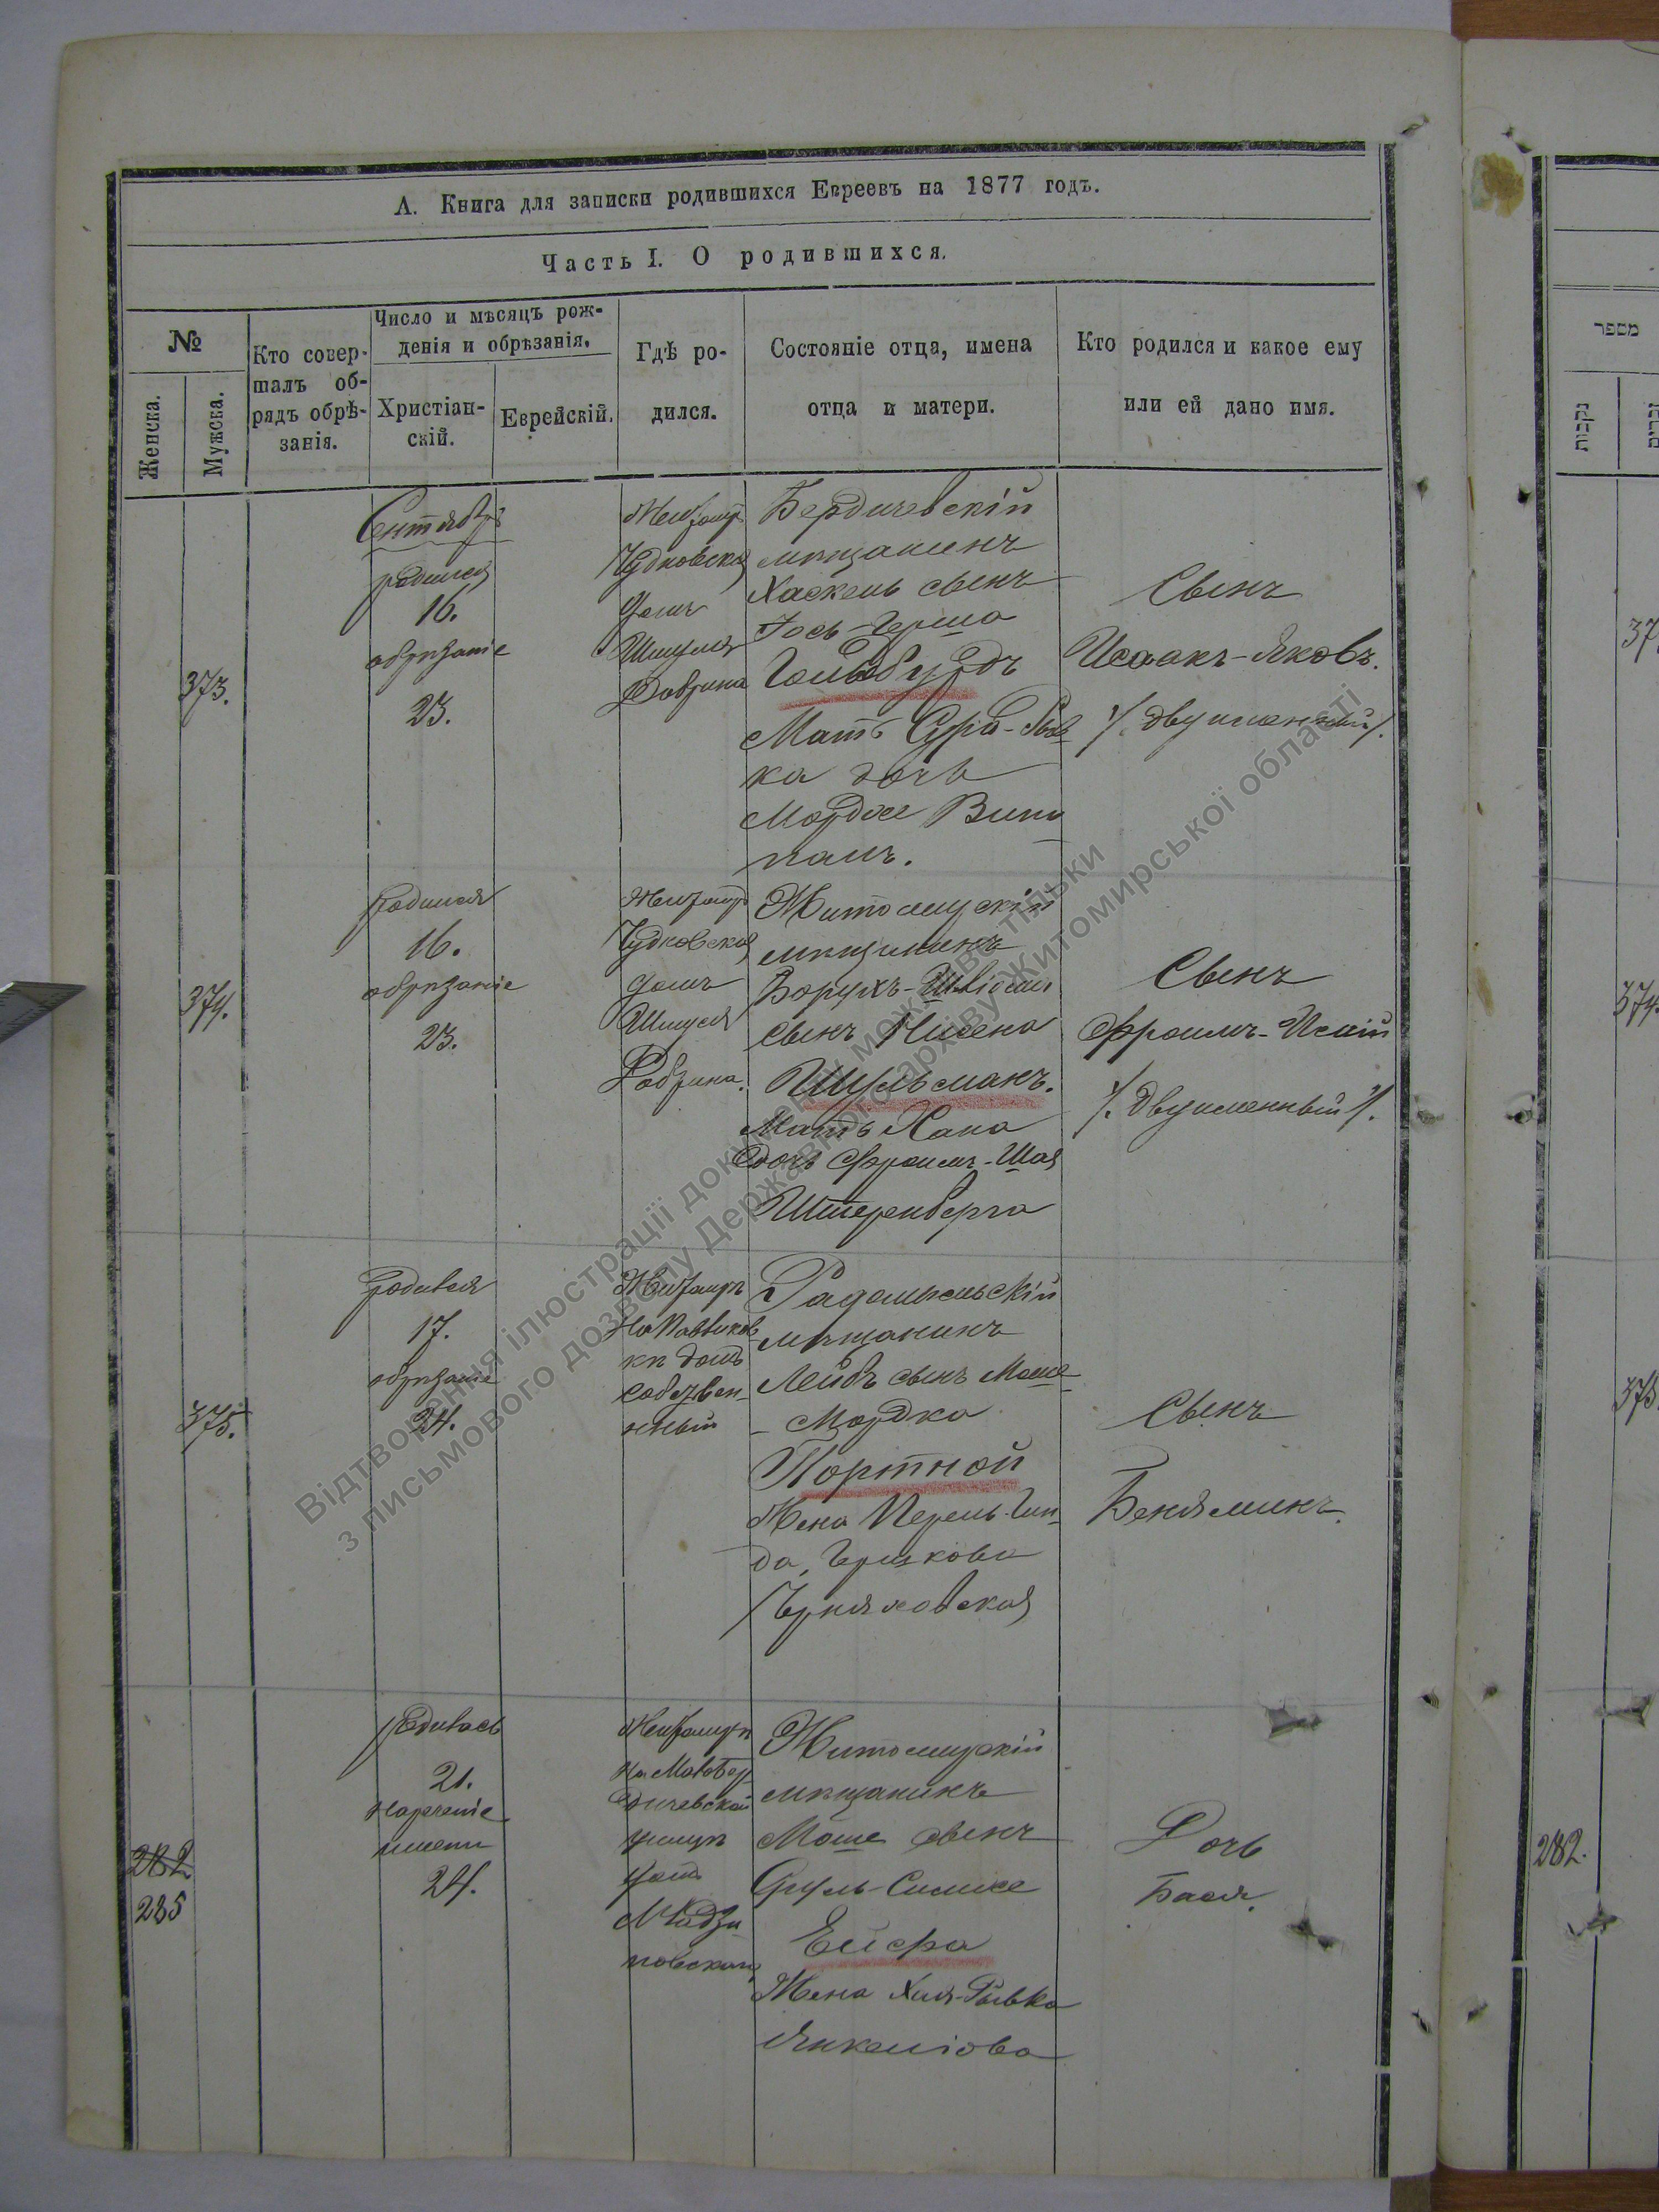 А. Книга для записки родившихся Евреевъ на 1877 годъ.
Часть I. О родившихся.
№
Женска.
Мужска.
Кто совер-
шалъ об-
рядъ обрѣ-
занія.
Число и мѣсяцъ рож-
денія и обрѣзанія.
Христіан-
скій.
Еврейскій.
Гдѣ ро-
дился.
Состояніе отца, имена
отца и матери.
Кто родился и какое ему
или ей дано имя.
373.
Сентябрь
родился
16.
обрѣзаніе
23.
Чудновская
домъ
Шмуля
Бердичевскій
мѣщанинъ
Хаскель сынъ
Іось-Герша
Гольдбурдъ
Мать Сура-Рыв
ка дочь
Мордхе
Сынъ
Исаакъ-Яковъ.
/. двуименный /.
374.
родился
16.
обрѣзаніе
23.
Чудновская
домъ
Шмуля
Житомирскій
мѣщанинъ
Борухъ-
сынъ Нисена
Шульманъ.
Мать Хана
дочь Фроимъ-Шая
Штеренберга
Сынъ
Фроимъ-
/. двуименный /.
375.
родился
17.
обрѣзаніе
24.
кѣ домъ
собствен-
нный
Радомысльскій
мѣщанинъ
Лейбъ сынъ Моше
- Мордка
Портной
Жена Перель-Гин-
да, Гершкова
Черняховская
Сынъ
Беняминъ.
282
285
родилась
21.
нареченіе
имени
24.
На Малобер
дичевской
улицѣ
домъ
Житомирскій
мѣщанинъ
Моше сынъ
Сруль-Симхе
Ейфра
Жена Хая-Рывка
Янкеліова
Дочь
Бася.
מספר
נקבות
זכרים
37
374.
375.
282.
Відтворення ілюстрації документу можливе тільки
з письмового дозволу Державного архіву Житомирської області